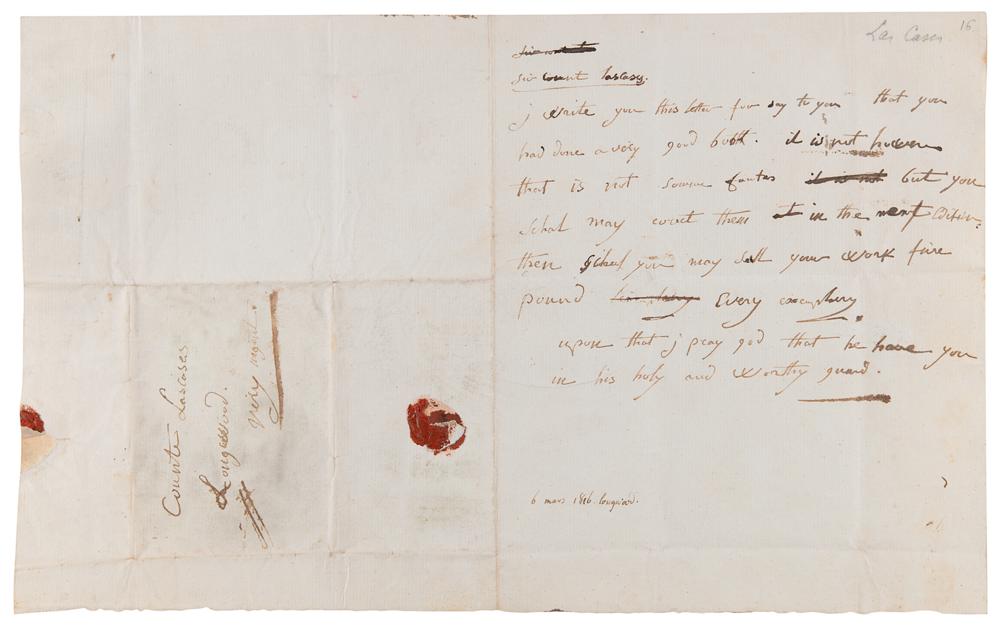 Las Cases 16
sir count lascases.
j write you this letter for say to you that you
had done a very good bottk. it is not however
that is not somme fautes it is not but you
schal may corect them at in the next Edition.
then schal you may sell your work five
pound Every exemplary
upon that j pray god that he have you
in his holy and worthy guard.
6 mars 1816. longwood.
Counte Lascases
Longwood.
very urgent.